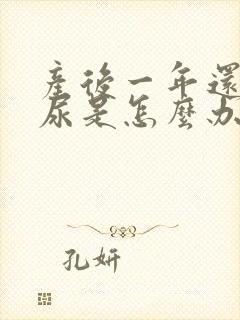 產後一年還
尿是怎麼办
孔妍